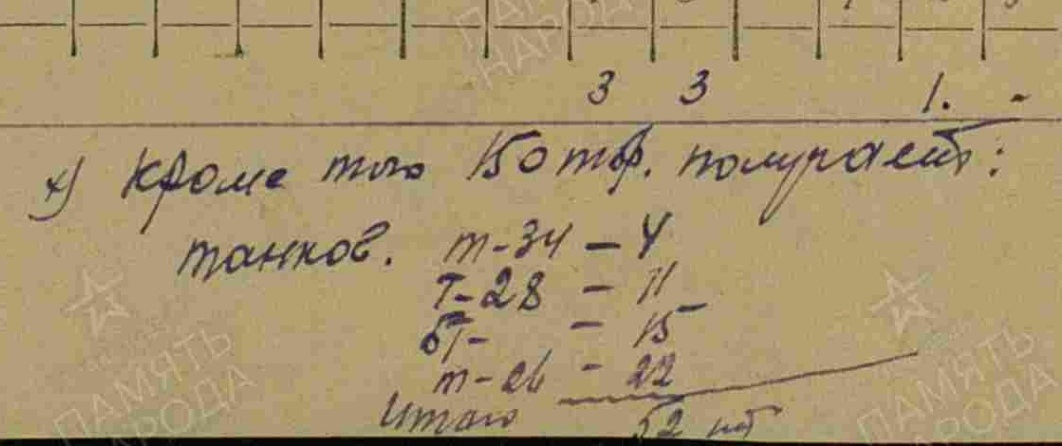 3 3 1. -
х) Кроме того 150 тбр. получает:
танков. т-34 - 4
Т-28 - 11
БТ- - 15
т-26 - 22
Итого 52 шт
ПАМЯТЬ НАРОДА
ПАМЯТЬ НАРОДА
ПАМЯТЬ НАРОДА